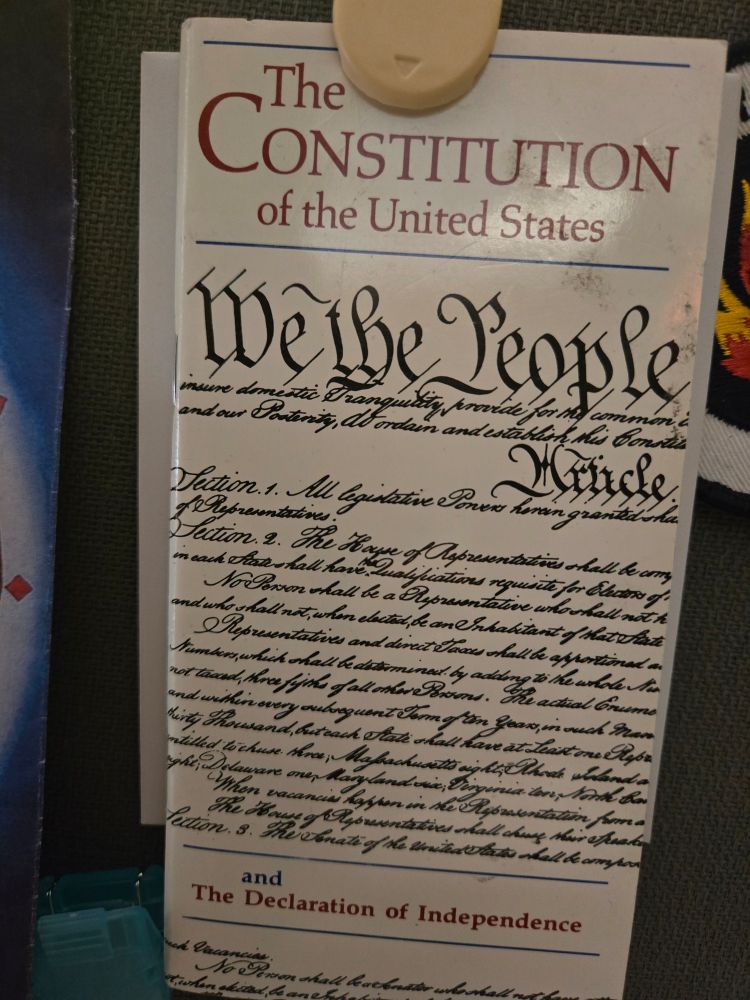 The
CONSTITUTION
of the United States
We the People
insure domestic Tranquility, provide for the common
and our Posterity, do ordain and establish this Constitu
Article.
Section. 1. All legislative Powers herein granted sha
of Representatives.
Section. 2. The House of Representatives shall be com
in each State shall have the Qualifications requisite for Electors of
No Person shall be a Representative who shall not h
and who shall not, when elected, be an Inhabitant of that State
Representatives and direct Taxes shall be apportioned a
Numbers, which shall be determined by adding to the whole Nu
not taxed, three fifths of all other Persons. The actual Enume
and within every subsequent Term of ten Years, in such Man
thirty Thousand, but each State shall have at Least one Repr
ntitled to chuse three, Massachusetts eight, Rhode Island a
ight, Delaware one, Maryland six, Virginia ten, North Car
When vacancies happen in the Representation from a
The House of Representatives shall chuse their Speake
Section. 3. The Senate of the United States shall be compos
and
The Declaration of Independence
such Vacancies.
No Person shall be a Senator who shall not have
t, when elected, be an